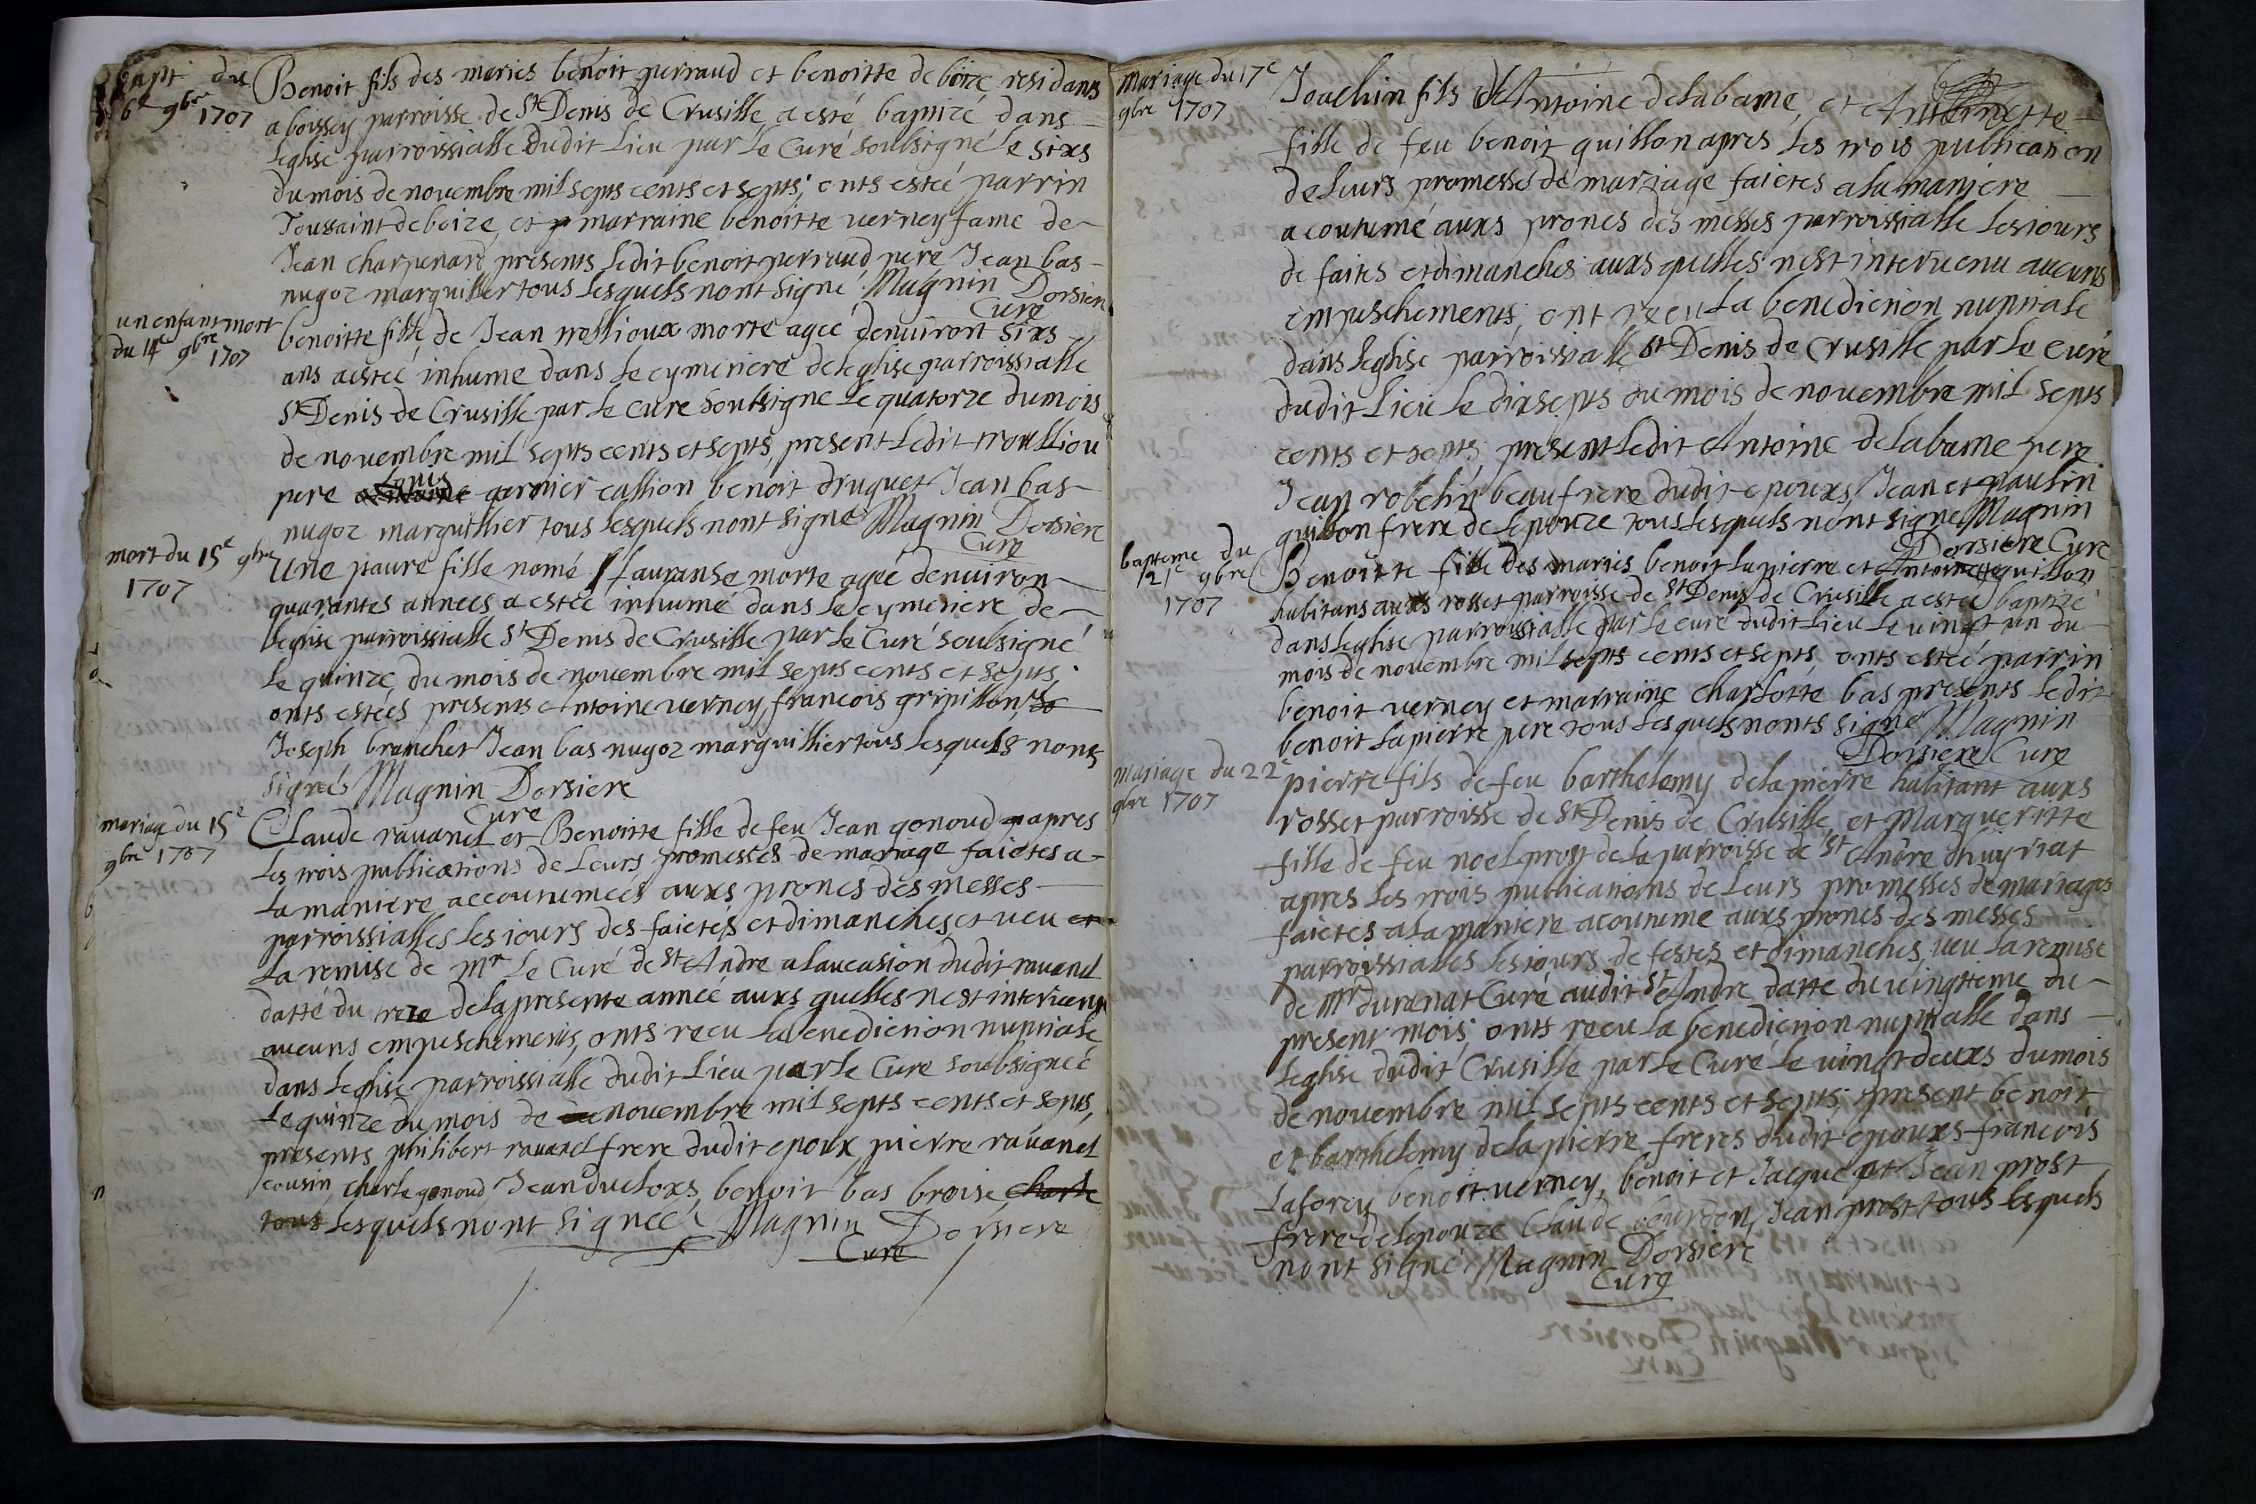 bapt du
6e 9bre 1707
Benoit fils des maries benoit perraud et benoitte deboize residants
a boissey parroisse de St Denis de Crusille a esté baptizé dans
leglise parroissialle dudit Lieu par le Curé soubsigné le sixs
du mois de novembre mil septs cents et septs; onts esteé parrin
Toussaint deboize, et marraine benoitte verney fame de
Jean charpenard presents ledit benoit perraud pere Jean bas
nugoz marquillier tous lesquels nont signe Magnin Dorsiere
Cure
un enfant mort
du 14e 9bre
1707
benoitte fille de Jean morte ageé denuiron sixs
ans a esteé inhume dans le cymetiere de leglise parroissialle
St Denis de Crusille par le cure soubsigne le quatorze du mois
de novembre mil septs cents et septs, present ledit trouilliou
pere Lonis garnier benoit druguet Jean bas
nugoz marguillier tous lesquels nont signe Magnin Dorsiere
Cure
mort du 15e 9bre
1707
une paure fille nomé fauranse morte ageé denuiron
quarantes anneés a esteé inhumé dans le cymetiere de
leglise parroissialle St Denis de Crusille par le Curé soubsigné
le quinze du mois de novembre mil septs cents et septs,
onts esteés presents Antoine verney, francois gripillon,
Joseph branchet Jean bas nugoz marguillier tous lesquels nonts
signés Magnin Dorsiere
Cure
mariage du 15e
9bre 1707
Claude ravanel et Benoitte fille de feu Jean genoud apres
les trois publications de leurs promesses de mariage faictes a
la maniere accoutumeés auxs prones des messes
parroissialles les iours des faictés et dimanches, et veu
la remise de Mr le Curé de St Andre a laucasion dudit ravanel
datté du treze de la presente anneé auxs quelles nest intervenu
aucuns empeschements, onts recu la benediction nuptiale
dans leglise parroissialle dudit Lieu par le Cure soubsigneé
le quinze du mois de novembre mil septs cents et septs,
presents philibert ravanel frere dudit epoux, pierre ravanel
cousin, charle genoud Jean ducloxs, benoit bas broise charle
tous lesquels nont signeé Magnin Dorsiere
Cure
Mariage du 17e
9bre 1707
Joachin fils dAntoine delabame, et Antoinette
fille de feu benoit quillon apres les trois publication
de leurs promesses de mariage faictes a la maniere
acoutumé auxs prones des messes parroissialle les iours
de faites et dimanches auxs quelles nest intervenu aucuns
empeschements, ont receu la benediction nuptiale
dans leglise parroissialle St Denis de Crusille par le Curé
dudit Lieu le dixsepts du mois de novembre mil septs
cents et septs, present ledit Antoine delabame pere
Jean robelin beaufrere dudit epouxs Jean et paulin
quillon frere de lepouze tous lesquels nont signe Magnin
Dorsiere Cure
bapteme du
21e 9bre
1707
Benoitte fille des maries benoit lapierre et Antoinette quillon
habitans auxs rosset parroisse de St Denis de Crusille a esteé baptizé
dans leglise parroissialle par le curé dudit Lieu le vingt un du
mois de novembre mil septs cents et septs, onts esteé parrin
benoit verney et marraine charlotte bas presents ledit
benoit lapierre pere tous lesquels nonts signe Magnin
Dorsiere Cure
Mariage du 22e
9bre 1707
pierre fils de feu barthelemy delapierre habitant auxs
rosset parroisse de St Denis de Crusille, et Margueritte
fille de feu noel prost de la parroisse de St Andre dhuyriat
apres les trois publications de leurs promesses de mariages
faictes a la maniere acoutume auxs prones des messes
parroissialles les iours de festes et dimanches, veu la remise
de Mr duranat Curé audit St Andre datte du vingtieme du
present mois, onts recu la benediction nuptialle dans
leglise dudit Crusille par le Curé le vingt deuxs du mois
de novembre mil septs cents et septs, present benoit
et barthelemy delapierre freres dudit epouxs francois
laforey benoit verney, benoit et Jacque et Jean prost
frere de lepouze Claude bourdon, Jean prost tous lesquels
nont signé Magnin Dorsiere
Cure